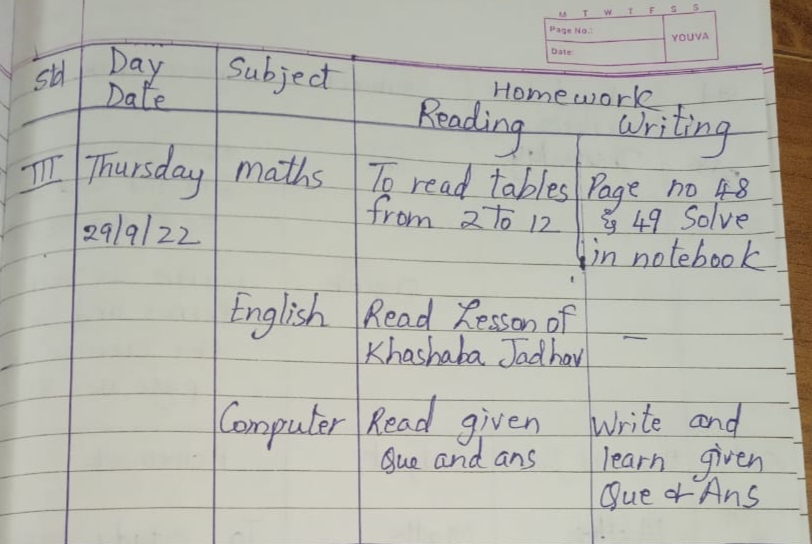 M T W T F S S
Page No.:
YOUVA
Date:
Std Day Subject Homework
Date Reading Writing
III Thursday maths To read tables Page no 48
29/9/22 from 2 to 12 & 49 Solve
in notebook
English Read Lesson of –
Khashaba Jadhav
Computer Read given Write and
Que and ans learn given
Que & Ans